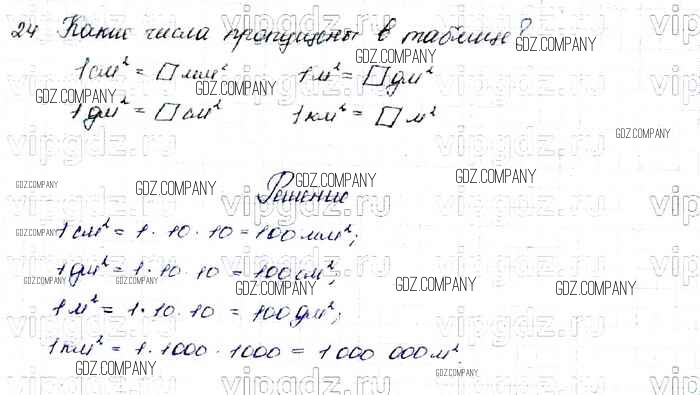 24 Какие числа пропущены в таблице?
1 см² = □ мм² 1 м² = □ дм²
1 дм² = □ см² 1 км² = □ м²
Решение
1 см² = 1 · 10 · 10 = 100 мм²;
1 дм² = 1 · 10 · 10 = 100 см²;
1 м² = 1 · 10 · 10 = 100 дм²;
1 км² = 1 · 1000 · 1000 = 1 000 000 м².
GDZ.COMPANY
vipgdz.ru